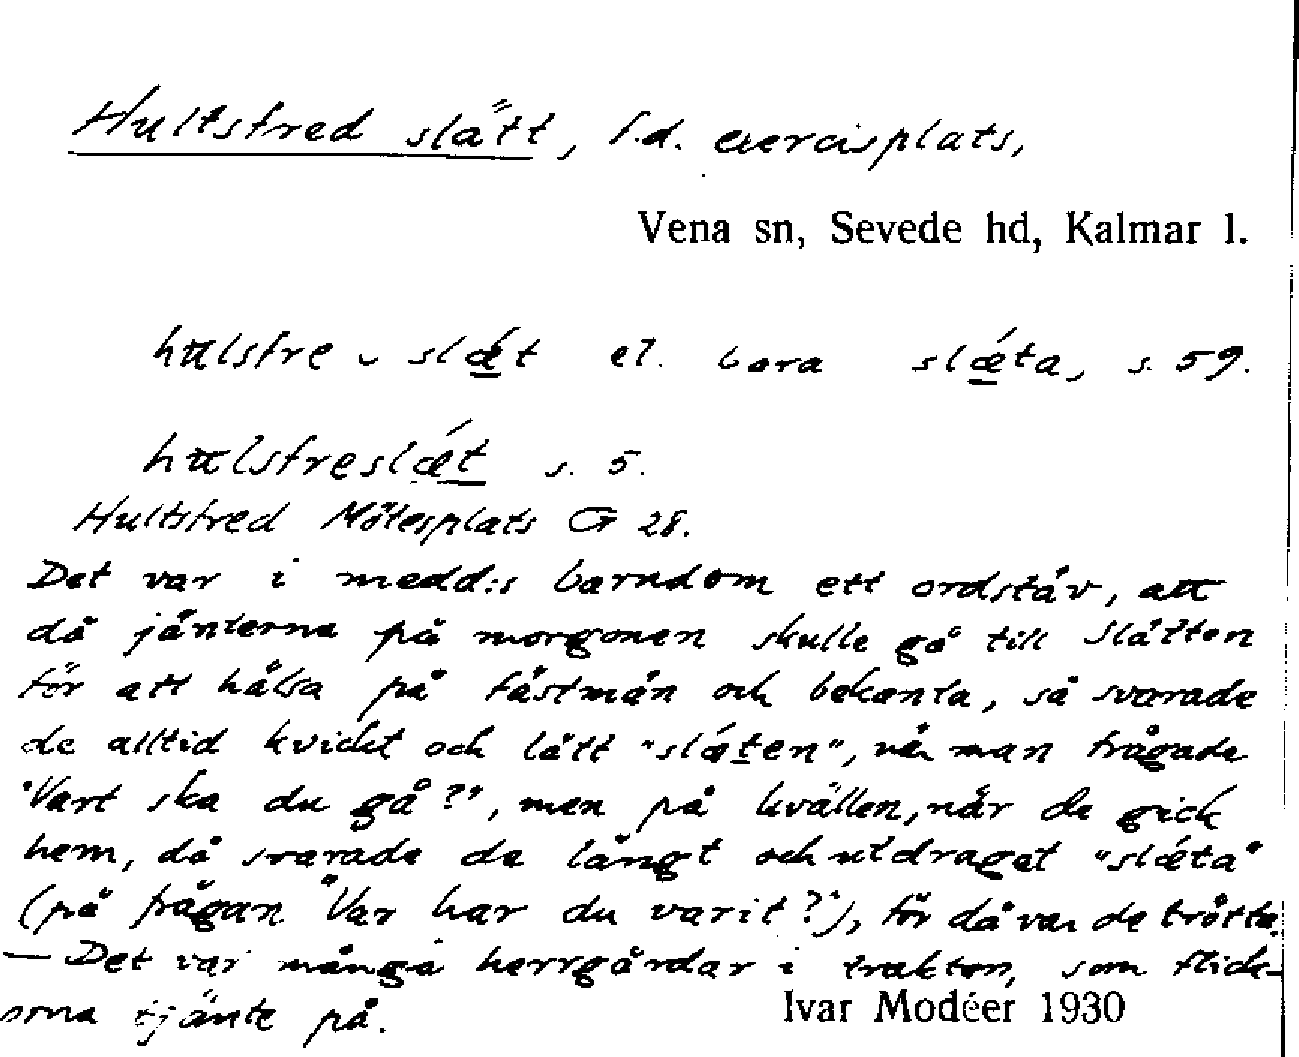 Hultsfred slätt, f.d. exercisplats,
Vena sn, Sevede hd, Kalmar l.
hulsfre slǽt el. bara slǽta, s. 59.
hulsfreslǽt s. 5.
Hultsfred Mötesplats G 28.
Det var i medd:s barndom ett ordstäv, att
då jänterna på morgonen skulle gå till Slätten
för att hälsa på fästmän och bekanta, så svarade
de alltid kvickt och lätt "slǽten", när man frågade
"Vart ska du gå?", men på kvällen, när de gick
hem, då svarade de långt och utdraget "slǽta"
(på frågan "Var har du varit?"), för då var de trötta.
— Det var många herrgårdar i trakten, som flick-
orna tjänte på.
Ivar Modéer 1930